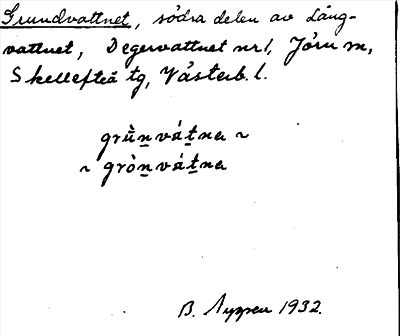 Grundvattnet, södra delen av Lång-
vattnet, Degervattnet nr 1, Jörn sn,
Skellefteå tg, Västerb. l.
grùn̠vát̠na ~
~ gròn̠vát̠na
B. 1932.